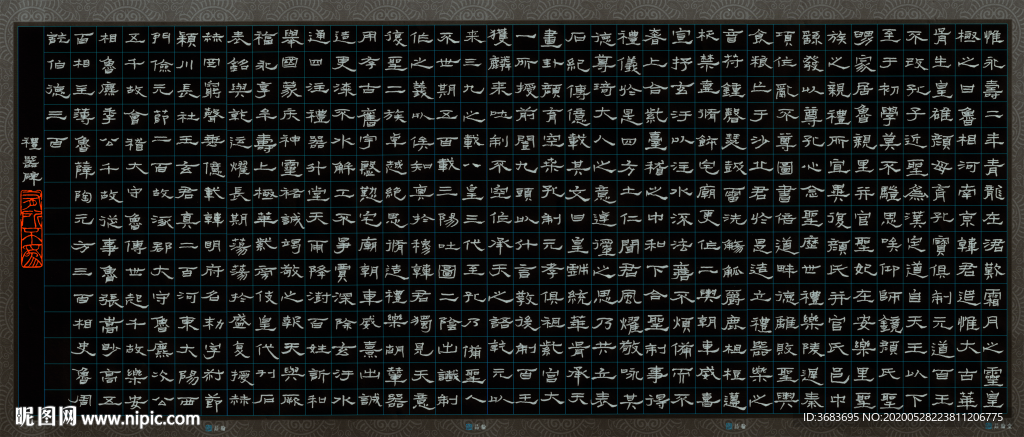 惟永壽二年青龍在涒歎霜月之靈皇
極之日魯相河南京韓君追惟大古華
胥生皇雄顏母育孔寶俱制元道百王
不改孔子近聖為漢定道自天王以下
至于初學莫不驥思嘆卬師鏡顏氏聖
舅家居魯親里并官聖妃在安樂里聖
族之親禮所宜異復顏氏并官氏邑中
繇發以尊孔心念聖歷世禮樂陵遲秦
項作亂不尊圖書倍道畔德離敗聖輿
食糧亡于沙丘君於是造立禮器樂之
音符鍾磬瑟鼓雷洗觴觚爵鹿柤梪籩
柉禁壺脩飾宅廟更作二輿朝車威熹
宣抒玄汙以注水流法舊不煩備而不
奢上合紫臺稽之中和下合聖制事得
禮儀於是四方士仁聞君風燿敬咏其
德尊琦大人之意逴彌之思乃共立表
石紀傳億載其文曰皇戲統華胥承天
畫卦顏育空桑孔制元孝俱祖紫宮大
一所授前闓九頭以什言教後制百王
獲麟來吐制不空作承天之語乾元以
來三九之載八皇三代至孔乃備聖人
不世期五百載三陽吐圖二陰出讖制
作之義以俟知奧於穆韓君獨見天意
復聖二族逴越絕思脩造禮樂胡輦器
用存古舊宇慇懃宅廟朝車威熹出誠
造更漆不水解工不爭賈深除玄汙水
通四注禮器升堂天雨降澍百姓訢和
舉國蒙慶神靈祐誠竭敬之報天與厥
福永享牟壽上極華紫旁伎皇代刊石
表銘與乾運燿長期蕩蕩於盛復授赫
赫罔窮聲垂億載韓明府名勑字叔節
潁川長社王玄君真二百河東大陽西
門儉元節二百故涿郡大守魯麃次公
五千故會稽大守魯傅世起千故樂安
相魯麃季公千故從事魯張嵩眇高五
百相主薄魯薛陶元方三百相史魯周
乾伯德三百
禮器碑
昵图网 www.nipic.com
ID:3683695 NO:20200528223811206775